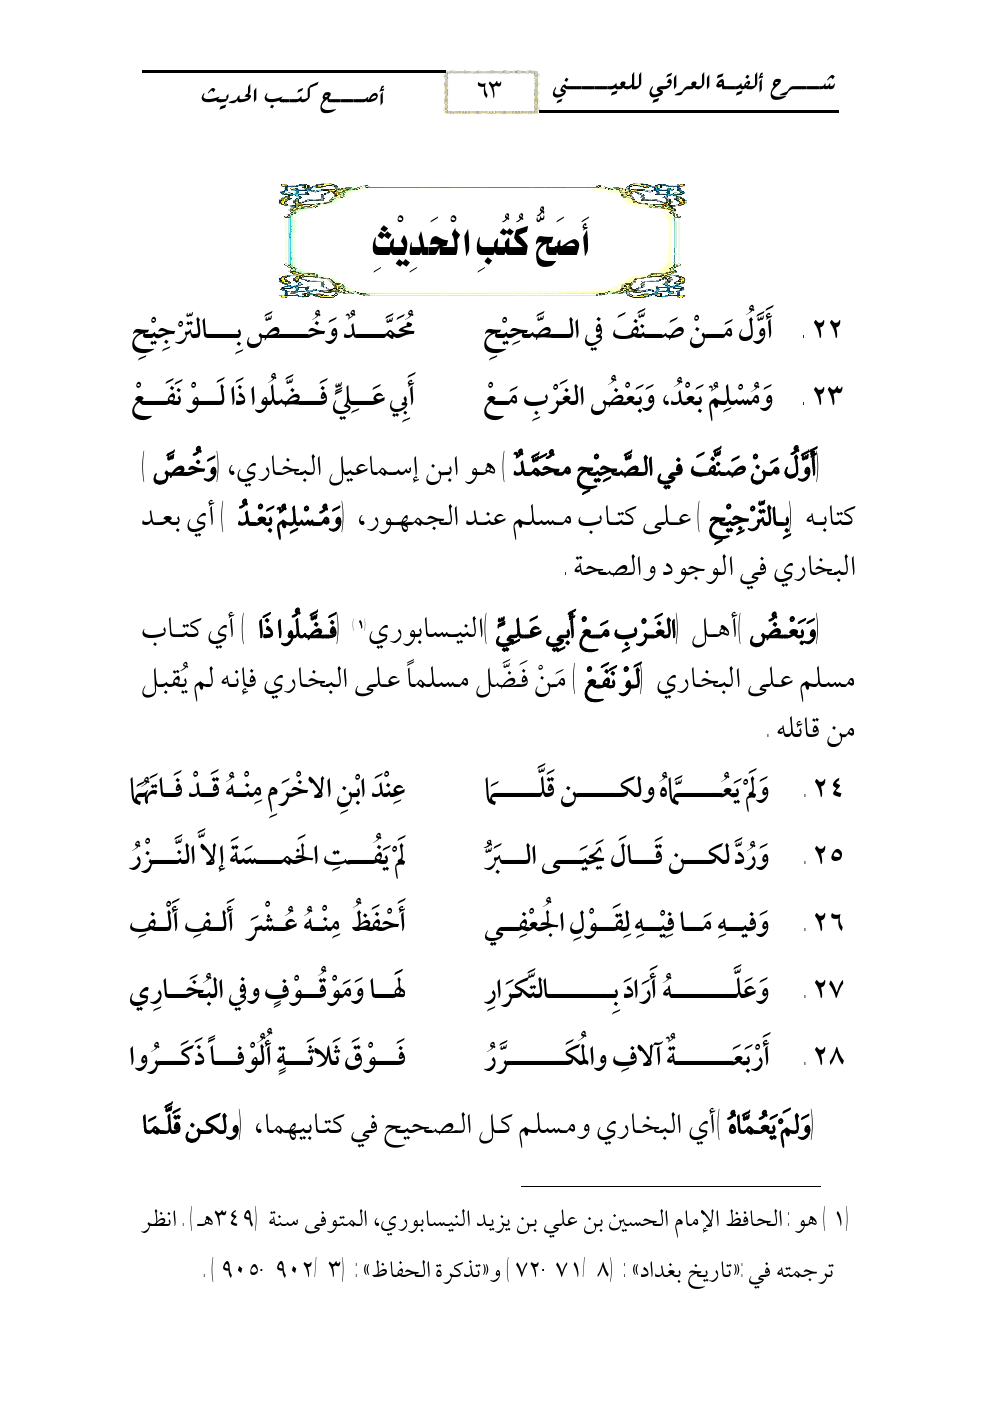 شـــرح ألفيـة العراقي للعيـــــني
٦٣
أصـــح كتـب الحديث
أَصَحُّ كُتُبِ الْحَدِيْثِ
٢٢. أَوَّلُ مَـنْ صَـنَّفَ في الـصَّحِيْحِ مُحَمَّـدٌ وَخُـصَّ بِـالتّرْجِيْحِ
٢٣. وَمُسْلِمٌ بَعْدُ، وَبَعْضُ الغَرْبِ مَعْ أَبِي عَـلِيٍّ فَـضَّلُوا ذَا لَـوْ نَفَـعْ
(أَوَّلُ مَنْ صَنَّفَ في الصَّحِيْحِ محُمَّدٌ) هـو ابـن إسـماعيل البخـاري، (وَخُصَّ)
كتابـه (بِـالتّرْجِيْحِ) عـلى كتـاب مـسلم عنـد الجمهـور، (وَمُـسْلِمٌ بَعْـدُ) أي بعـد
البخـاري في الوجود والصحة.
(وَبَعْـضُ) أهـل (الغَـرْبِ مَـعْ أَبِي عَـلِيٍّ) النيـسابوري(١) (فَـضَّلُوا ذَا) أي كتـاب
مسلم عـلى البخـاري (لَوْ نَفَعْ) مَنْ فَضَّل مسلماً على البخاري فإنه لم يُقبل
من قائله.
٢٤. وَلَمْ يَعُـمَّاهُ ولكـن قَلَّـمَا عِنْدَ ابْنِ الاخْرَمِ مِنْـهُ قَـدْ فَـاتَهُمَا
٢٥. وَرُدَّ لكـن قَـالَ يَحيَـى الـبَرُّ لَمْ يَفُـتِ الخَمـسَةَ إلاَّ النَّـزْرُ
٢٦. وَفيـهِ مَـا فِيْـهِ لِقَـوْلِ الجُعْفِـي أَحْفَظُ مِنْـهُ عُـشْرَ أَلـفِ أَلْـفِ
٢٧. وَعَلَّـهُ أَرَادَ بِـالتَّكرَارِ لَهَـا وَمَوْقُـوْفٍ وفي البُخَـارِي
٢٨. أَرْبَعَـةٌ آلافِ والمُكَـرَّرُ فَـوْقَ ثَلاثَـةٍ أُلُوْفـاً ذَكَـرُوا
(وَلمَ يَعُـمَّاهُ) أي البخـاري ومـسلم كـل الـصحيح في كتـابيهما، (ولكـن قَلَّـمَا
(١) هو: الحافظ الإمام الحسين بن علي بن يزيد النيسابوري، المتوفى سنة (٣٤٩هـ). انظر
ترجمته في: «تاريخ بغداد»: (٨/ ٧١-٧٢) و«تذكرة الحفاظ»: (٣/ ٩٠٢-٩٠٥).